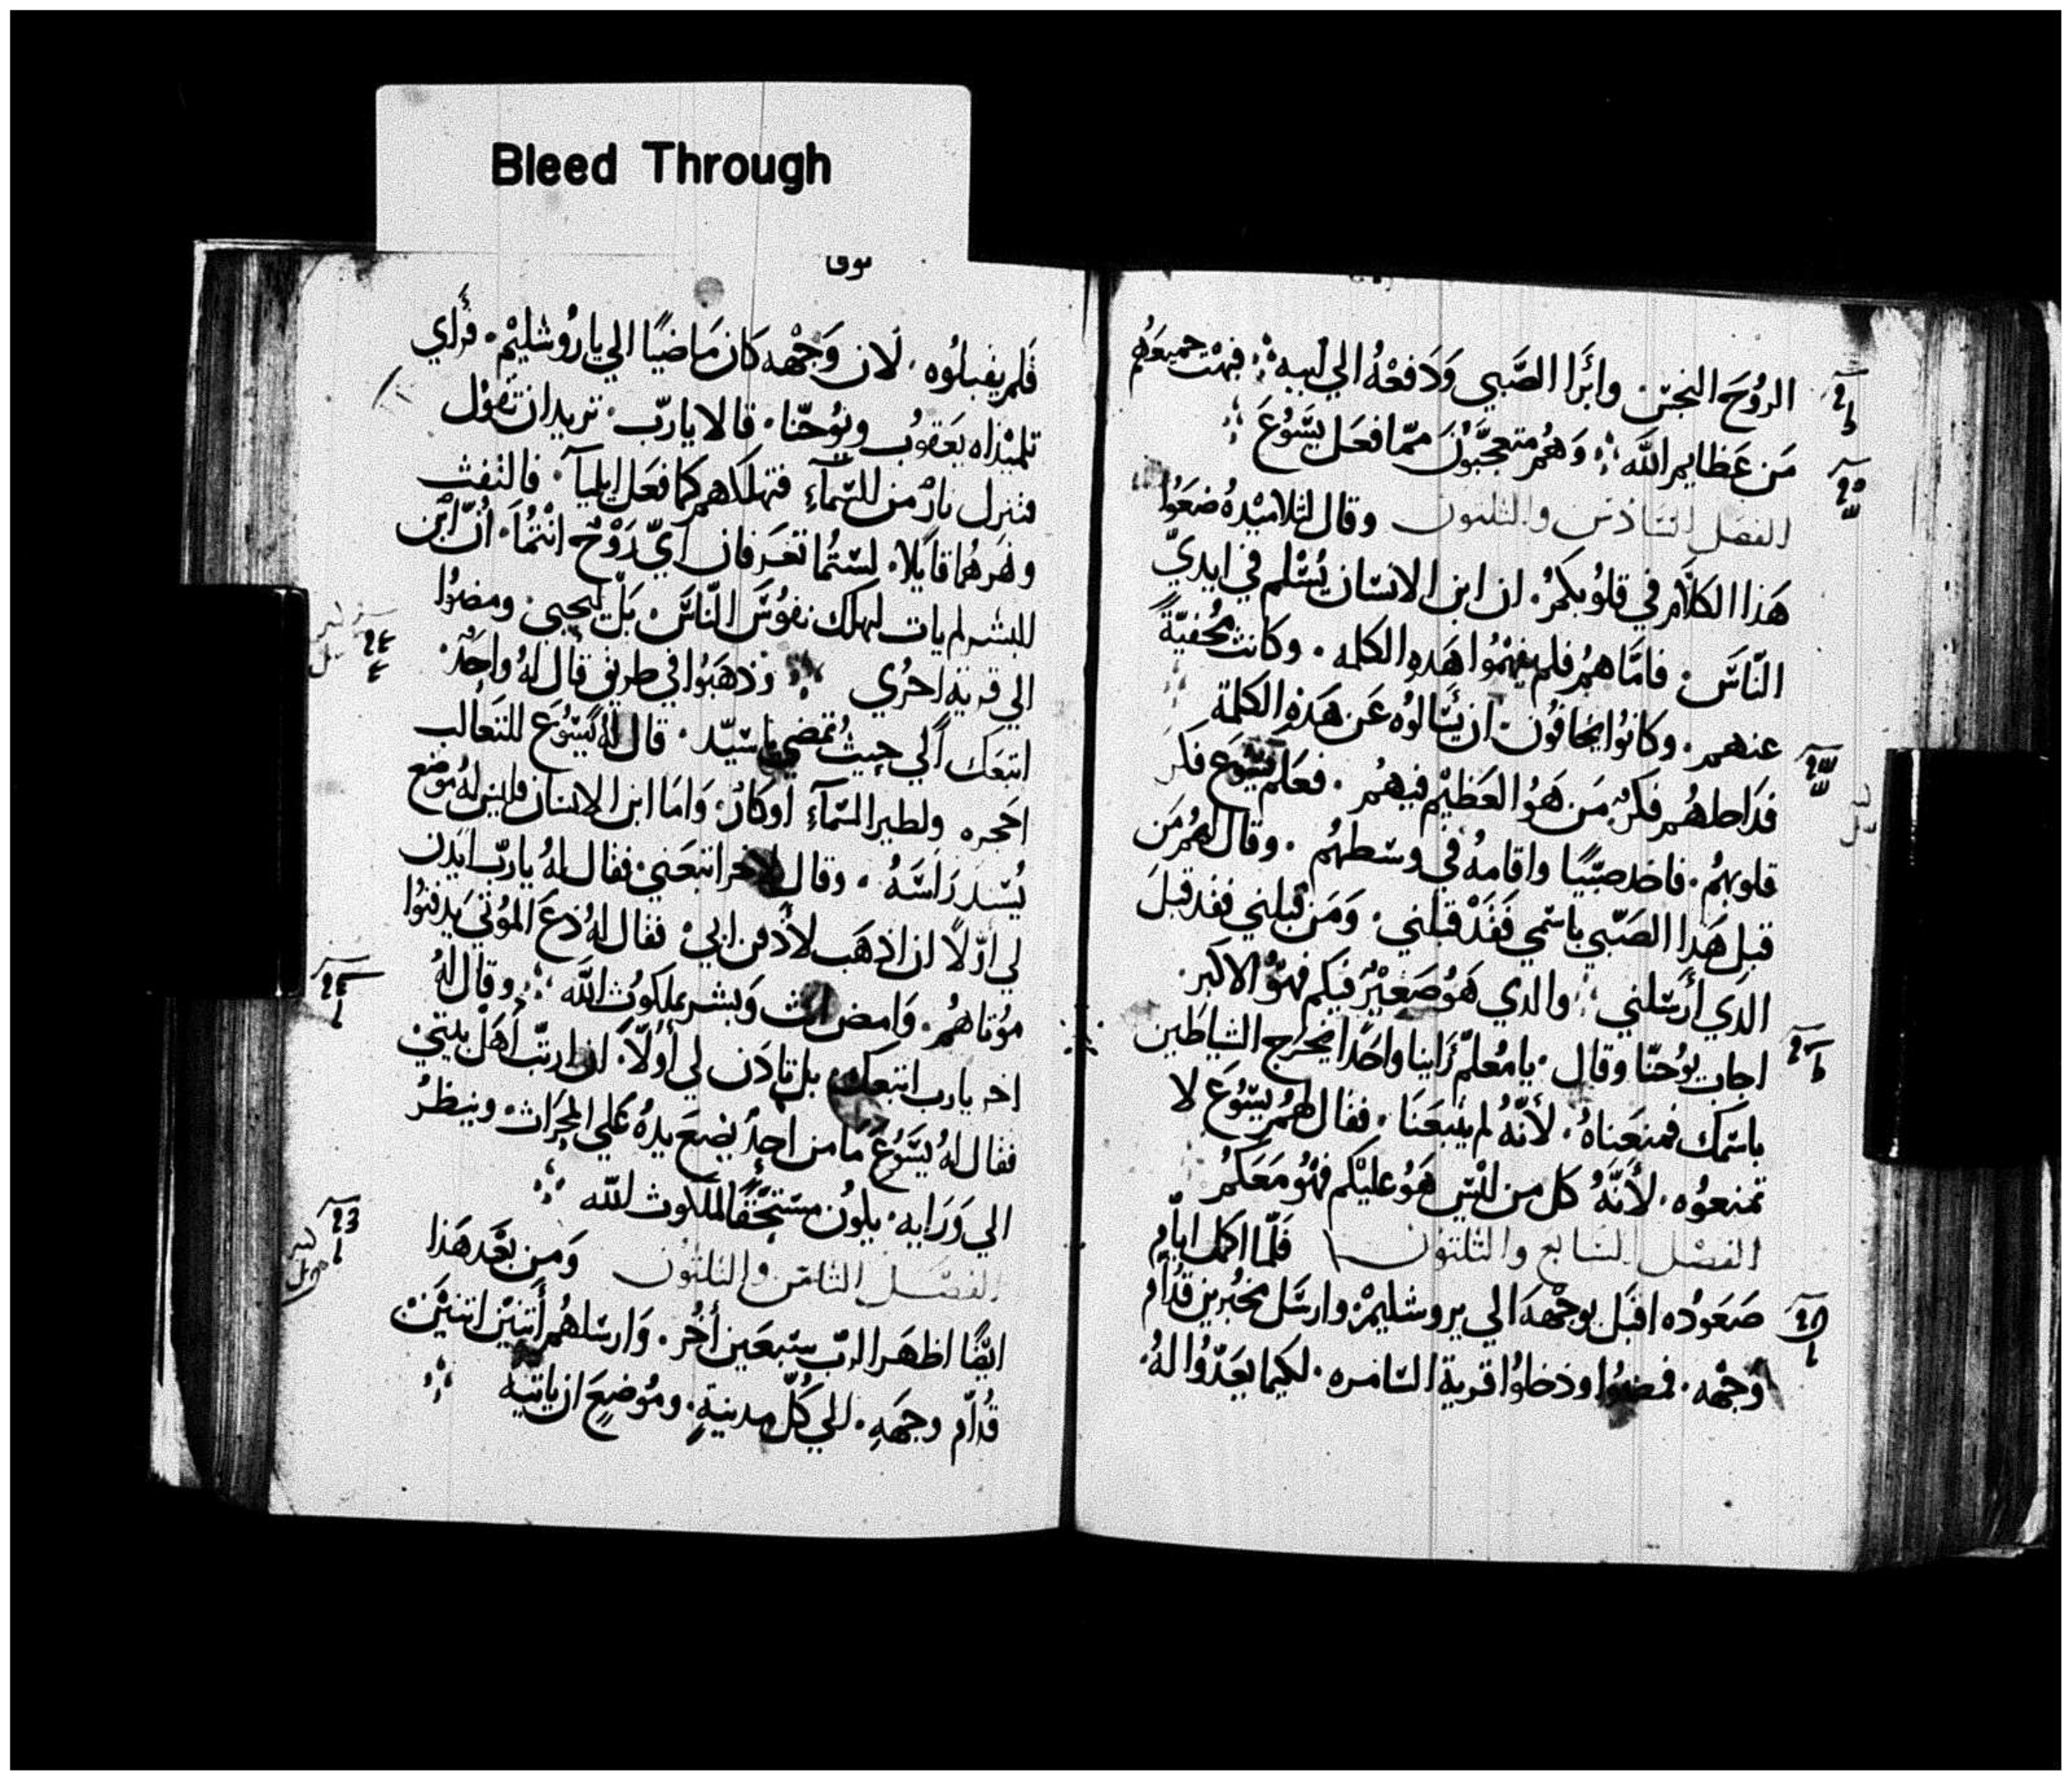 Bleed Through
الروُحَ النجسَ وابَرَا الصَّبي وَدَفعْهُ الي ابيه ؛ فبهتَ جميعَهُم
مَن عَظايم اللَه ؛ وَهُم متعجّبُونَ ممّا فعَل يسَوُعَ
الفصَل السَادسَ والثلثون وقال لتلاميْدهُ ضعَوُا
هَذا الكلاَم في قلوُبكمُ . ان ابن الانسَان يُسْلم في ايديّ
النّاسَ . فامّاهمُ فلم يفهمُوا هَدهِ الكلمه . وكانت مخفيّةً
عنهم . وكانوُا يخَافُون ان يسَالوُه عَن هَدهِ الكلمة
فدَاخلهُم فكرٌ مَن هَوُ العَظيْم فيهمُ . فعَلمَ يسَوُع فكرَ
قلوبهمُ . فاخد صبّيًا واقامهُ في وسَطهمُ . وقال لهُم مَن
قبِل هَدا الصَبّي باسَمي فَقَدْ قبلني . وَمَن قبلني فقد قبلَ
الدَي أرسَلني ؛ والدي هَوُ صَغيْرٌ فيكم فهوُ الاكبر .
اجابَ يوُحنّا وقال . يا مُعلمّ رَاينا واحَدًا يخرج الشياطَين
باسَمك فمنعَناهُ . لأنّهُ لم يتبعَنَا . فقال لهمُ يسَوُعَ لا
تمنعوُه . لأنَّهُ كل من ليْس هَوُ عليْكم فهُوَ مَعَكمُ
الفصَل السَابع والثلثون فَلمّا اكمل ايامِ
صَعَوُده اقبَل بوجْههَ الي يروشليمْ . وارسَل مخبُرين قدُام
وَجْهه . فمضوُا ودخلوُا قرية السَامره . لكيما يعَدّوُا لهُ .
لوقا
فَلم يقبلوُه . لان وَجْهه كان مَاضيًا الي ياروُشليْم . فرَاي
تلميْذاه يَعقوُب ويوُحنّا . قالا ياربّ . تريد ان نقوُل
فتنزل نارٌ من السَمآءِ فتهلكهم كما فعَل ايليآ . فالتفت
ونهَرهُما قايلا . لسَتُما تعَرفان أيّ رَوُحٌ انتْمُا . أنّ ابْن
البشر لم يات ليهلك نفوُسَ النّاسَ . بَلْ ليحيي . ومضوُا
الي قرية اخرُي ؛ وذهَبَوُا في طريق قال لهُ واحَدٌ .
اتبعَك الَي حيثُ تمضي ياسَيّد . قال لهُ يسَوُعَ للتَعالب
احَجره ولطير السَمآءِ اوكارٌ . وَامَا ابن الانسَان فليسَ لهُ مَوُضع
يُسَند رَاسَهُ . وقال لاخر اتبعَني . فقال لهُ ياربّ ايَدن
لي اوّلاً ان اذهَب لأدفن ابي . فقال لهُ دَعَ الموُتي يَدفنوُا
موُتاهمُ . وَامض انت وَبشر بملكوُت اللَه ؛ وقال لهُ
اخر يارب اتبعك . بل تادَن لي أوُلاً . ان ارتّب أهَلْ بيتي
فقال لهُ يسَوُعَ مَا من احدٌ يضعَ يدهُ عَلي المحرَاث . وينظرُ
الي وَرَايه . يكوُن مسَتحَقًا لملكوت اللَه
الفصَل الثامَن والثلثون وَمن بعَد هَذا
ايضًا اظهَر الربّ سَبعَين أخُر . وَارسَلهُم أتنيْن اتنيْن
قدُاّم وجهَهِ . الي كُلّ مدينةٍ . ومَوُضعٍ ان ياتيه